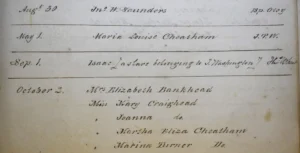 Augt 30 Jno. W. Saunders
May 1. Maria Louise Cheatham J.T.W.
Sep. 1. Isaac (a slave belonging to J. Washington)
October 2. Mrs Elizabeth Bankhead
Miss Mary Craighead
" Joanna do
" Martha Eliza Cheatham
" Matina Turner Do